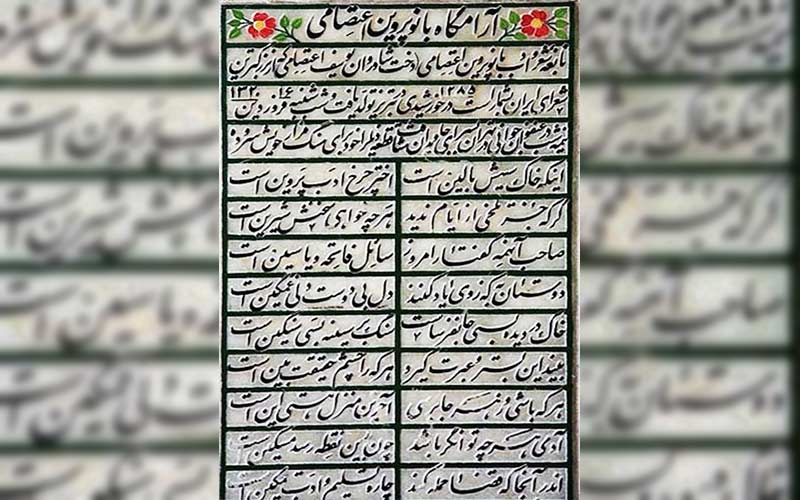 آرامگاه بانو پروین اعتصامی
نابغه شعر و ادب بانو پروین اعتصامی دخت شادروان یوسف اعتصامی که از بزرگترین
شعرای ایران بشمار است در ۱۲۸۵ خورشیدی در تبریز تولد یافت و شب شنبه ۱۶ فروردین ۱۳۲۰
نیمه شب در عنفوان جوانی در تهران بسرای جاودان شتافت قطعه زیر را خود برای سنگ مزار خویش سروده
اینکه خاک سیهش بالین است اختر چرخ ادب پروین است
گرچه جز تلخی از ایام ندید هرچه خواهی سخنش شیرین است
صاحب آنهمه گفتار امروز سائل فاتحه و یاسین است
دوستان به که ز وی یاد کنند دل بی دوست دلی غمگین است
خاک در دیده بسی جانفرساست سنگ بر سینه بسی سنگین است
بیند این بستر و عبرت گیرد هر که را چشم حقیقت بین است
هر که باشی و ز هر جا برسی آخرین منزل هستی این است
آدمی هر چه توانگر باشد چون بدین نقطه رسد مسکین است
اندر آنجا که قضا حمله کند چاره تسلیم و ادب تمکین است